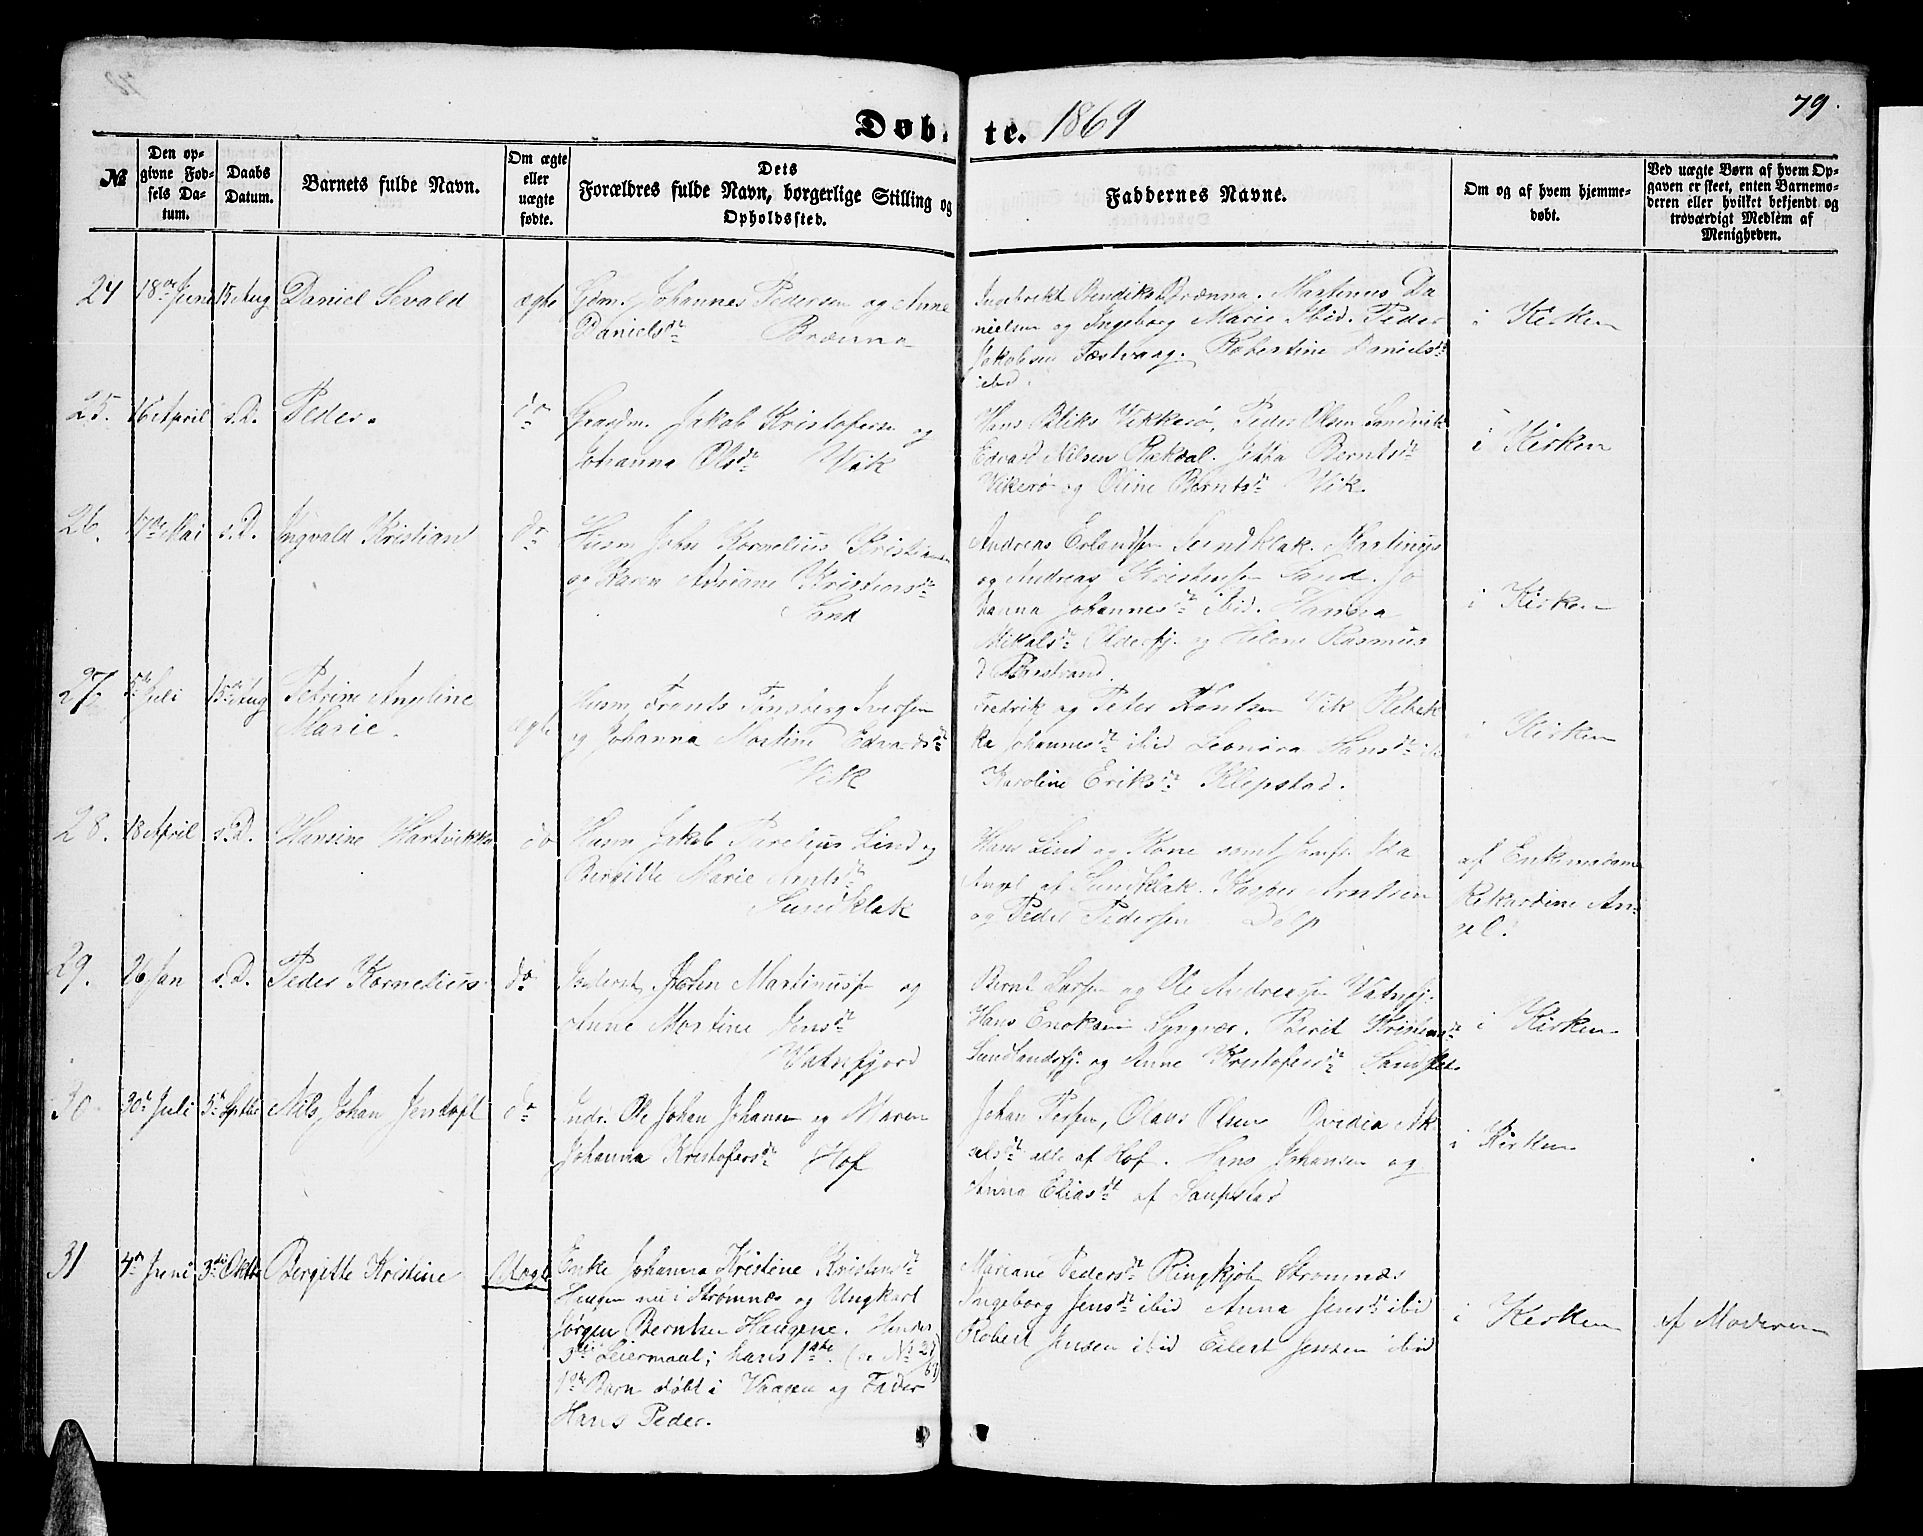 79.
Døb- te. 1869
№
Den op-
givne Fød-
sels Da-
tum.
Daabs
Datum.
Barnets fulde Navn.
Om ægte
eller
uægte
fødte.
Dets
Forældres fulde Navn, borgerlige Stilling og
Opholdssted.
Faddernes Navne.
Om og af hvem hjemme-
døbt.
Ved uægte Børn af hvem Op-
gaven er skeet, enten Barnemo-
deren eller hvilket bekjendt og
troværdigt Medlem af
Menigheden.
24 18de Juni 15 Aug Daniel Sevald ægte
Johannes Pedersen og Anne
Danielsdt Brænna
Bendiks Brænna. Martinus Da
nielsen og Ingeborg Marie ibid. Peder
Jakobsen Festvaag. Robertine Danielsdt
ibid.
i Kirken
25. 16 April s.D. Peder. do
Gaardm. Jakob Kristofersen og
Johanna Olsdt Vik
Hans Vikkerø, Peder Olsen Sandvik
Edvard Nilsen. Jetta Berntsdt
Vikerø og Oline Berntsdt Vik.
i Kirken
26. 17de Mai s.D. Ingvald Kristian do
Husm John Kornelius Kristiansen
og Karen Adriane Kristiansdt
Sand
Andreas Erlandsen Sundklak. Martinus
og Andreas Kristensen Sand. Jo
hanna Johannesdt ibid. Hanna
Mikalsdt Olderfj. og Helene Rasmus
d
i Kirken
27. 5te Juli 15de Aug Petrine Angeline
Marie. ægte
Husm Frants Tønsberg Iversen
og Johanna Martine Edvardsdt
Vik
Fredrik og Peter Knutsen Vik Rebek
ka Johannesdt ibid Leonora Hansdt ib
Karoline Eriksdt Klepstad.
i Kirken
28. 18 April s.D. Hansine Hartvikka do
Husm Jakob Aurelius Lind og
Birgitte Marie Arntsdt
Sundklak
Hans Lind og Kone samt Jomfr. Ida
Angel af Sundklak. Kasper Arntsen
og Peder Pedersen Dolp
af Enkemadam
Rikardine An-
gel.
29. 26 Jan s.D. Peder Kornelius do
Inderst Johan Martinussen og
Anne Martine Jensdt
Vatnfjord
Bernt Larsen og Ole Andreassen Vatnfj.
Hans Enoksen Lyngvær. Berit Kristensdt
Sundlandsfj. og Anne Kristofersdt
i Kirken
30. 30te Juli 5te Septbr Nils Johan Jentoft do
Inds. Ole Johan Johansen og Maren
Johanna Kristofersdt Hof
Johan Olaus Olsen Ovidia Ak
selsdt alle af Hof. Hans Johansen og
Hanna Eliasdt af Saupstad
i Kirken
31 4de Juni 3die Oktbr Bergitte Kristine Uægte
Enke Johanna Kristine Kristensdt
Haugen nu i Strømnæs og Ungkarl
Jørgen Berntsen Haugene. Hendes
3die Leiermaal; hans 1ste. (se № 21/67)
1ste Barn døbt i Vaagen og Fader
Hans Peder.
Mariane Pedersdt Ringkjøb Strømnæs
Ingeborg Jensdt ibid Anna Jensdt ibid
Robert Jensen ibid Eilert Jensen ibid
i Kirken
af Moderen